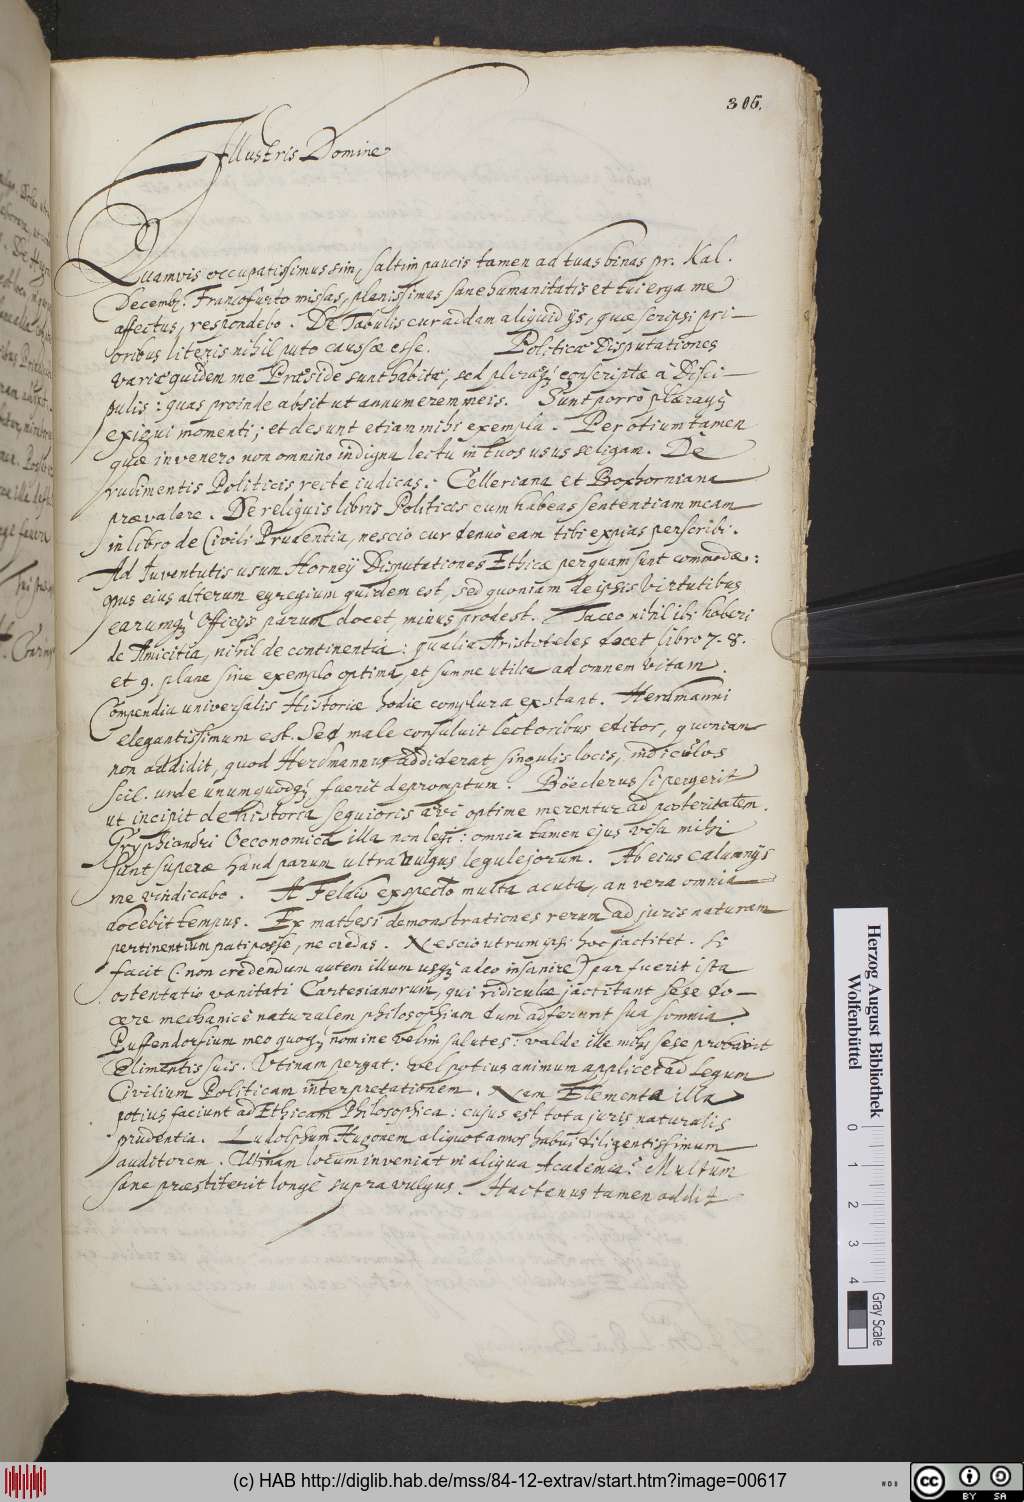 306.
Illustris Domine
Quamvis occupatissimus sim, saltim paucis tamen ad tuas binas pr. Kal.
Decemb. Francofurto missas, plenissimas sane humanitatis et tui erga me
affectus, respondebo. De Tabulis cur addam aliquid ijs, quæ scripsi pri-
oribus literis nihil puto caussæ esse. Politicæ Disputationes
variæ quidem me Præside sunt habitæ, sed pleræq; conscriptæ a Disci-
pulis: quas proinde absit ut annumerem meis. Sunt porrò plæræq;
exigui momenti; et desunt etiam mihi exempla. Per otium tamen
quæ invenero non omnino indigna lectu in tuos usus seligam. De
rudimentis Politicis recte iudicas: Celleriana et Boxhorniana
prævalere. De reliquis libris Politicis cum habeas sententiam meam
in libro de Civili Prudentia, nescio cur denuò eam tibi expias perscribi.
Ad Iuventutis usum Horneij Disputationes Ethicæ perquam sunt commodæ:
opus eius alterum egregium quidem est, sed quoniam de ipsis Virtutibus
earumq; Officijs parum docet, minus prodest. Taceo nihil ibi haberi
de Amicitia, nihil de continentia: qualia Aristoteles docet libro 7. 8.
et 9. plane sine exemplo optima, et summe utilia ad omnem vitam.
Compendia universalis Historiæ hodie complura exstant. Herdmanni
elegantissimum est. Sed male consuluit lectoribus editor, quoniam
non addidit, quod Herdmannus addiderat singulis locis, indiculos
scil. unde unumquodq; fuerit depromptum. Böeclerus si pergerit
ut incipit de historia sequioris ævi optime merentur ad posteritatem.
Gryphiandri Oeconomica illa non legi: omnia tamen ejus visa mihi
sunt supere haud parum ultra vulgus legulejorum. Ab eius calumnijs
me vindicabo. A Feldio exspecto multa acuta, an vera omnia
docebit tempus. Ex mathesi demonstrationes rerum ad juris naturam
pertinentium pati posse, ne credas. Nescio utrum ipsi hoc jactitet. Si
facit (non credendum autem illum usq; adeo insanire) par fuerit ista
ostentatio vanitati Cartesianorum, qui ridicule jactitant sese do-
cere mechanicè naturalem philosophiam dum adferunt sua somnia.
Puffendorfium meo quoq; nomine velim salutes: valde ille mihi sese probavit
Elimentis suis. Utinam pergat: vel potius animum applicet ad Legum
Civilium Politicam interpretationem. Nam Elementa illa
potius faciunt ad Ethicam Philosophica: cujus est tota juris naturalis
prudentia. Ludolphum Hugonem aliquot annos habui diligentissimum
auditorem. Utinam locum inveniat in aliqua Academia: Multum
sane præstiterit longè supra vulgus. Hactenus tamen addit
Herzog August Bibliothek
Wolfenbüttel
0 1 2 3 4
Gray Scale
(c) HAB http://diglib.hab.de/mss/84-12-extrav/start.htm?image=00617
cc BY SA